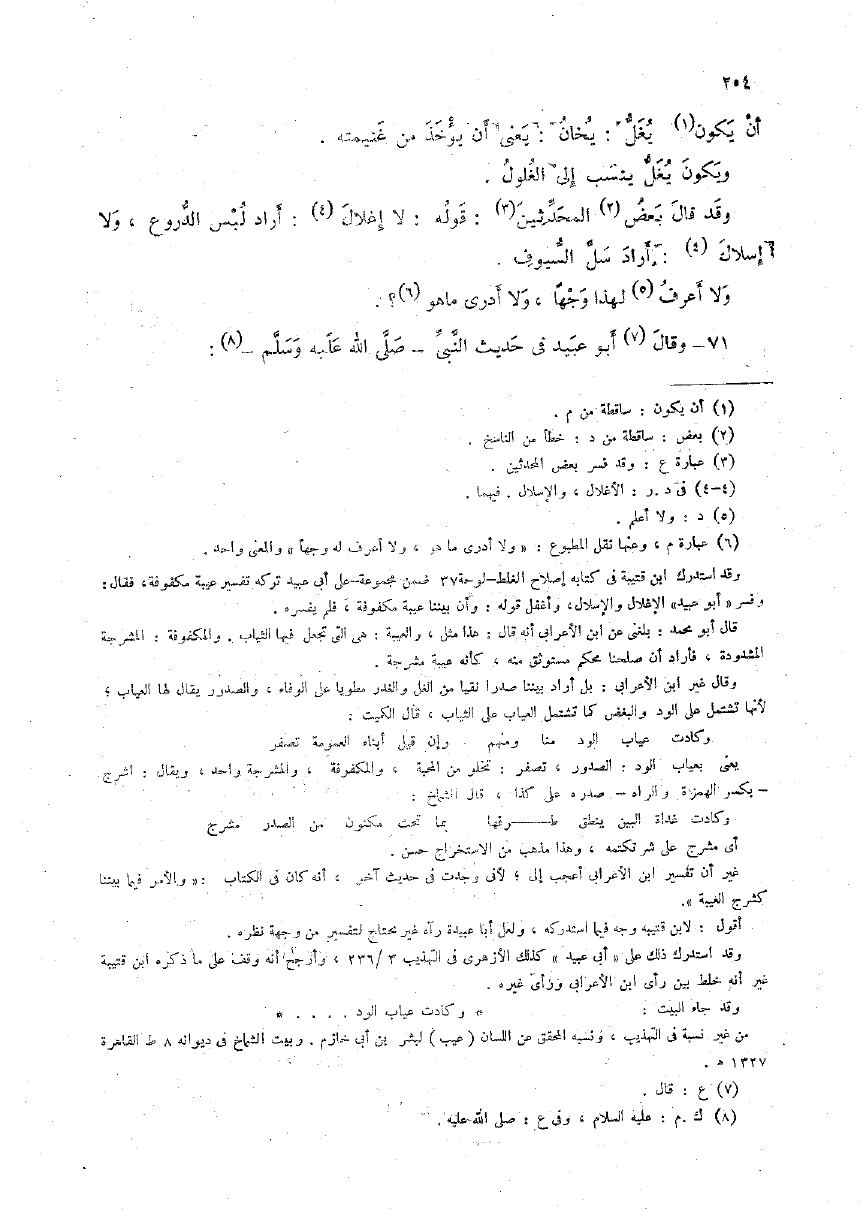 ٢٠٤
أنْ يَكون(١) يُغَلُّ : يُخانُ : يَعْنى أَن يؤْخَذَ من غَنيمته .
ويَكونَ يُغَلُّ ينسَب إلى الغُلولُ .
وقَد قالَ بَعضُ(٢) المحَدِّثينَ(٣) : قَولُه : لا إغلالَ(٤) : أراد لُبْس الدُّروع ، وَلا
إسلالَ (٤) : أَرادَ سَلَّ السُّيوفِ .
وَلا أعرفُ(٥) لهذا وَجْهاً ، وَلا أدرى ماهو(٦)؟ .
٧١– وقالَ(٧) أبو عبَيد فى حَديث النَّبىِّ – صَلَّى الله عَلَيه وَسَلَّم –(٨) :
(١) أن يكون : ساقطة من م .
(٢) بعض : ساقطة من د : خطأ من الناسخ .
(٣) عبارة ع : وقد فسر بعض المحدثين .
(٤–٤) فى د . ر : الأغلال ، والإسلال . فيهما .
(٥) د : ولا أعلم .
(٦) عبارة م ، وعنها نقل المطبوع : « ولا أدرى ما هو ، ولا أعرف له وجهاً » والمعنى واحد .
وقد استدرك ابن قتيبة فى كتابه إصلاح الغلط–لوحة٣٧ ضمن مجموعة–على أبى عبيد تركه تفسير عيبة مكفوفة، فقال:
وفسر « أبو عبيد» الإغلال والإسلال، وأغفل قوله : وأن بيننا عيبة مكفوفة ، فلم يفسره .
قال أبو محمد : بلغنى عن ابن الأعرابى أنه قال : هذا مثل ، والعيبة : هى التى تجعل فيها الثياب . والمكفوفة : المشرجة
المشدودة ، فأراد أن صلحنا محكم مستوثق منه ، كأنه عيبة مشرجة .
وقال غير ابن الأعرابى : بل أراد بيننا صدرا نقيا من الغل والغدر مطويا على الوفاء ، والصدور يقال لها العياب ؛
لأنها تشتمل على الود والبغض كما تشتمل العياب على الثياب ، قال الكميت :
وكادت عياب الود منا ومنهم وإن قيل أبناء العمومة تصفر
يعنى بعياب الود : الصدور ، تصفر : تخلو من المحبة ، والمكفوفة ، والمشرجة واحد ، ويقال : اشرج
– بكسر الهمزة والراء – صدره على كذا ، قال الشماخ :
وكادت غداة البين ينطق طـــرفها بما تحت مكنون من الصدر مشرج
أى مشرج على شر تكتمه ، وهذا مذهب من الاستخراج حسن .
غير أن تفسير ابن الأعرابى أعجب إلى ؛ لأنى وجدت فى حديث آخر ، أنه كان فى الكتاب : « والأمر فيما بيننا
كشرج العيبة ».
أقول : لابن قتيبة وجه فيما استدركه ، ولعل أبا عبيدة رآه غير محتاج لتفسير من وجهة نظره .
وقد استدرك ذلك على « أبى عبيد » كذلك الأزهرى فى التهذيب ٣ / ٢٣٦ ، وأرجح أنه وقف على ما ذكره ابن قتيبة
غير أنه خلط بين رأى ابن الأعرابى ورأى غيره .
وقد جاء البيت : * وكادت عياب الود . . . . *
من غير نسبة فى التهذيب ، ونسبه المحقق عن اللسان ( عيب ) لبشر بن أبى خازم . وبيت الشماخ فى ديوانه ٨ ط القاهرة
١٣٢٧ ه .
(٧) ع : قال .
(٨) ك . م : عليه السلام ، وفى ع : صلى الله عليه .